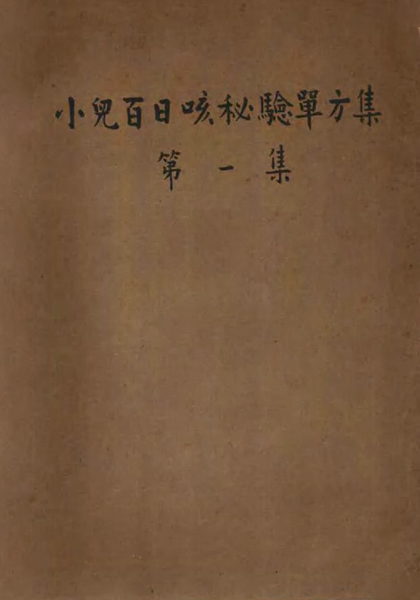 小兒百日咳秘驗單方集
第一集